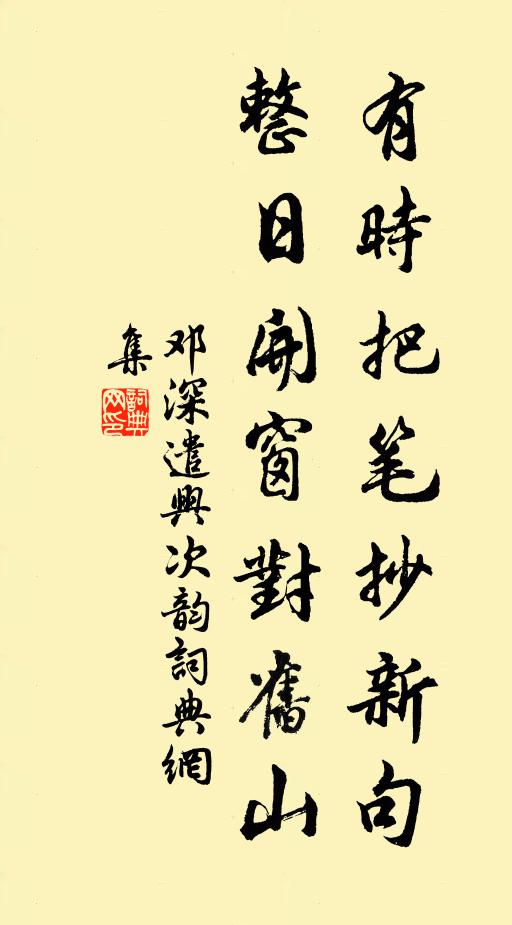 有時把笔抄新句
整日開窗對舊山
邓深遣興次韵詞典網
集
詞典网印